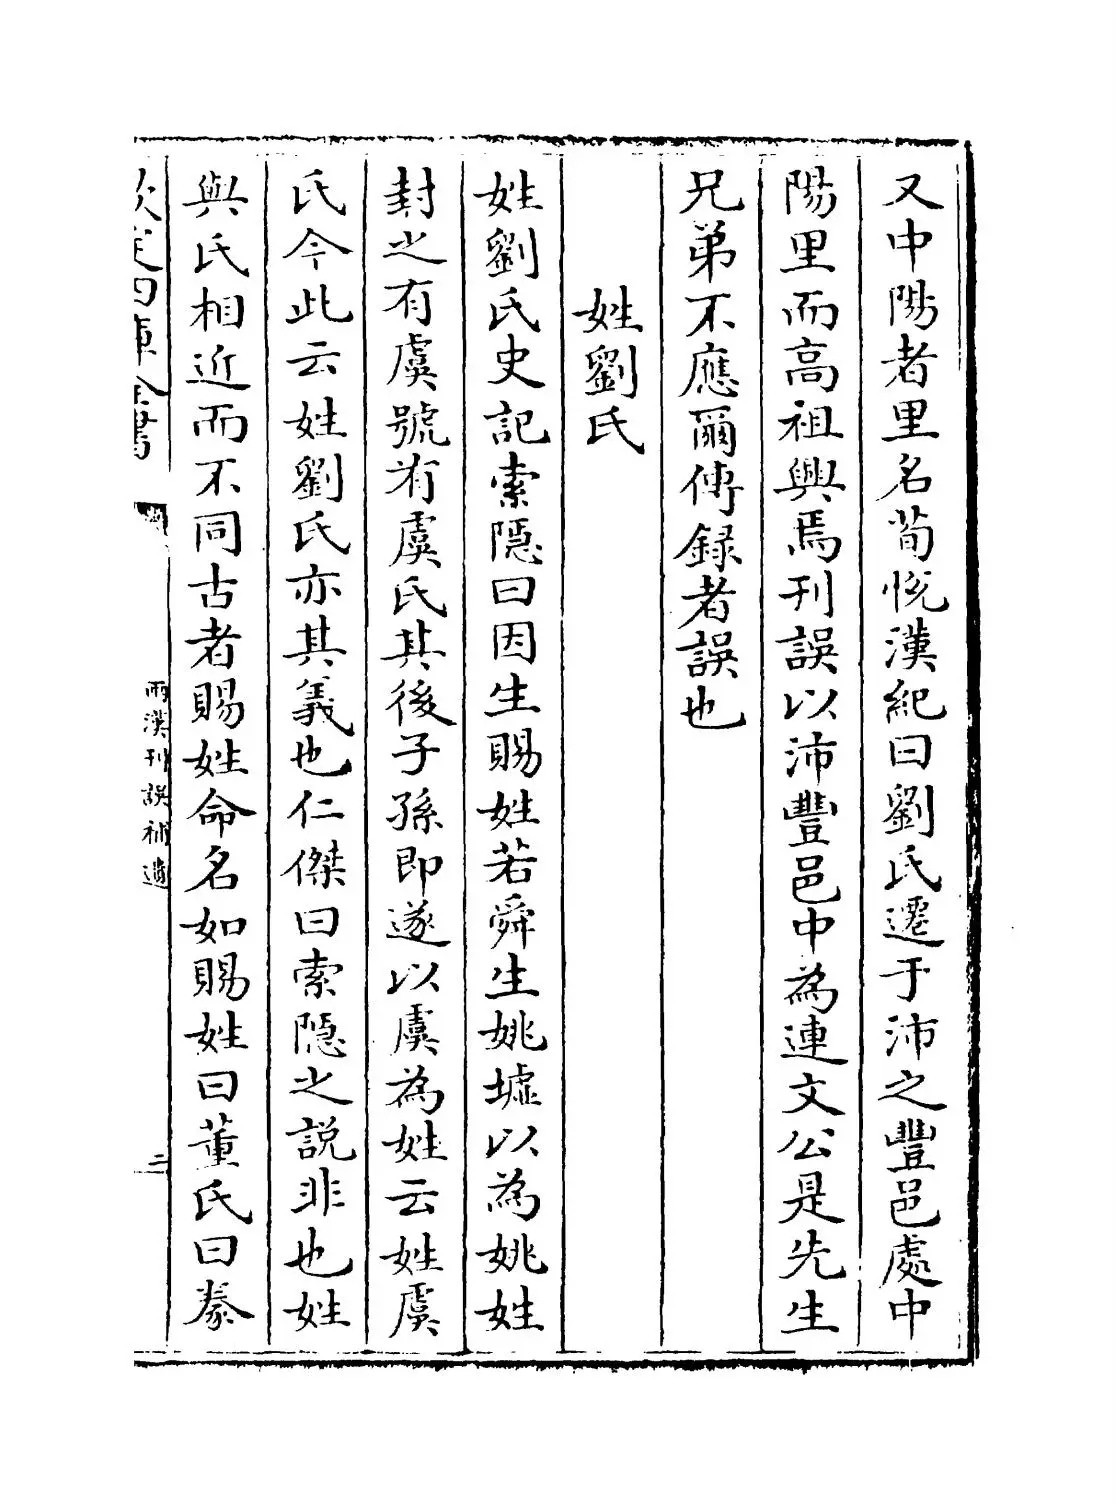 又中陽者里名荀悅漢紀曰劉氏遷于沛之豐邑處中
陽里而高祖興焉刊誤以沛豐邑中為連文公是先生
兄弟不應爾傳録者誤也
姓劉氏
姓劉氏史記索隱曰因生賜姓若舜生姚墟以為姚姓
封之有虞號有虞氏其後子孫即遂以虞為姓云姓虞
氏今此云姓劉氏亦其義也仁傑曰索隱之説非也姓
與氏相近而不同古者賜姓命名如賜姓曰董氏曰豢
欽定四庫全書
兩漢刊誤補遺
二